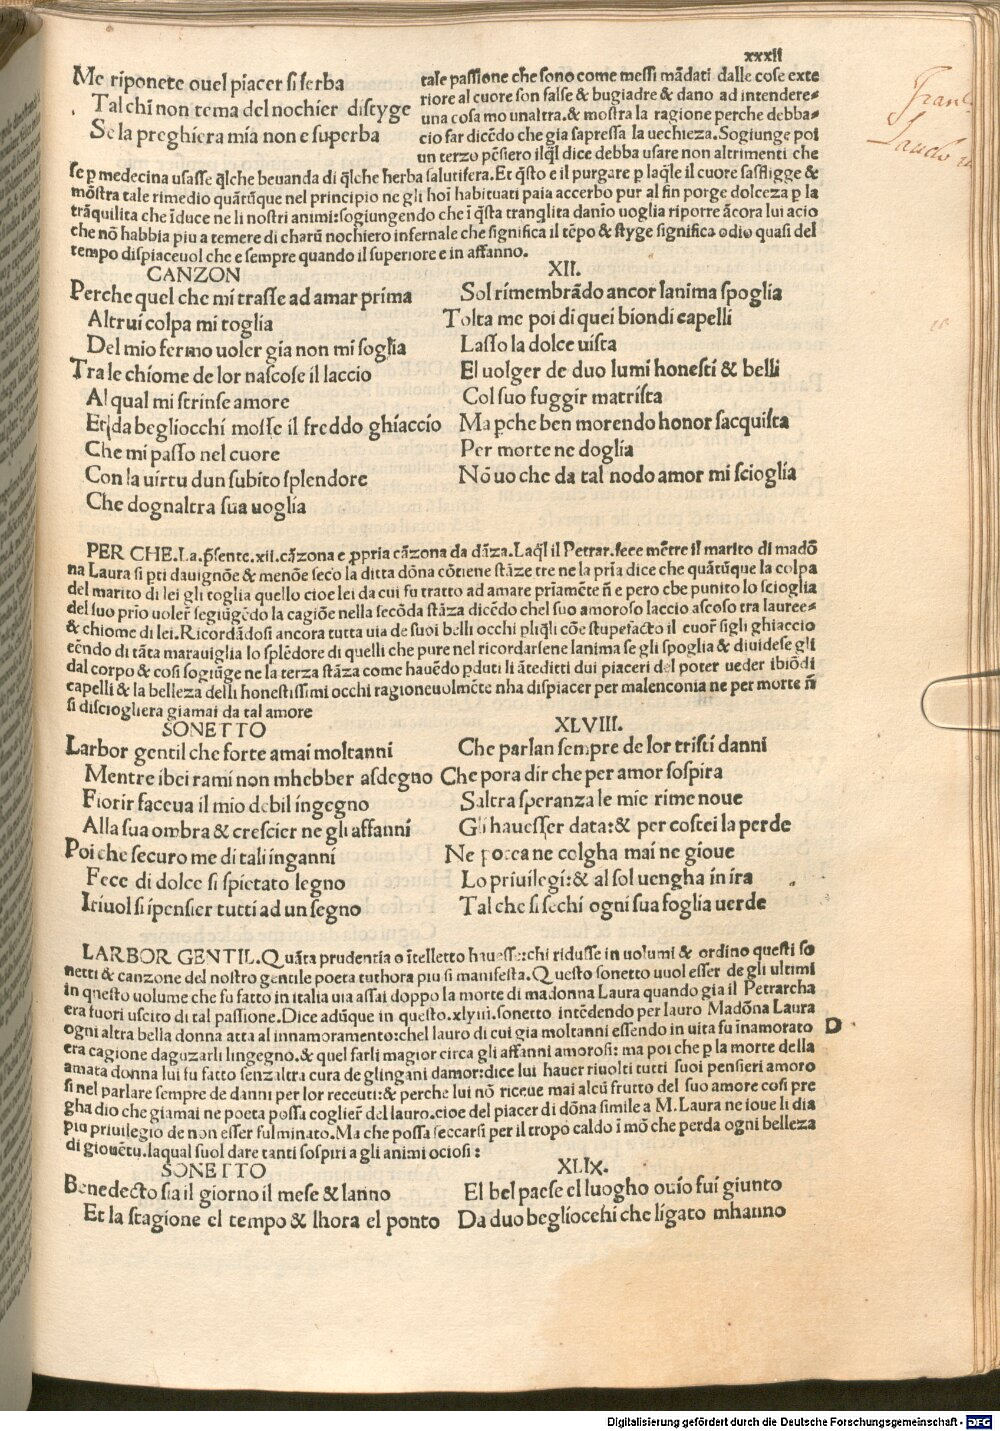 xxxii
Me riponete ouel piacer si serba
Tal chi non tema del nochier di styge
Se la preghiera mia non e superba
tale passione che sono come messi mãdati dalle cose exte
riore al cuore son false & bugiadre & dano ad intendere
una cosa mo unaltra.& mostra la ragione perche debba
cio far dicẽdo che gia sapressa la uechieza. Sogiunge poi
un terzo pẽsiero ilq̃l dice debba usare non altrimenti che
se p medecina usasse q̃lche beuanda di q̃lche herba salutifera. Et q̃sto e il purgare p laq̃le il cuore sasfligge &
mõstra tale rimedio quãtũque nel principio ne gli hoĩ habituati paia accerbo pur al fin porge dolceza p la
trãquilita che ĩduce ne li nostri animi: sogiungendo che ĩ q̃sta tranq̃lita danio uoglia riporre ãcora lui acio
che nõ habbia piu a temere di charũ nochiero infernale che significa il tẽpo & styge significa odio quasi del
tempo dispiaceuol che e sempre quando il superiore e in affanno.
CANZON XII.
Perche quel che mi trasse ad amar prima
Altrui colpa mi toglia
Del mio fermo uoler gia non mi soglia
Tra le chiome de lor nascose il laccio
Al qual mi strinse amore
Et da begliocchi mosse il freddo ghiaccio
Che mi passo nel cuore
Con la uirtu dun subito splendore
Che dognaltra sua uoglia
Sol rimembrãdo ancor lanima spoglia
Tolta me poi di quei biondi capelli
Lasso la dolce uista
El uolger de duo lumi honesti & belli
Col suo fuggir matrista
Ma pche ben morendo honor sacquista
Per morte ne doglia
Nõ uo che da tal nodo amor mi scioglia
PER CHE. La. p̃sente. xii. cãzona e ppria cãzona da dãza. Laq̃l il Petrar. fece mẽtre il marito di madõ
na Laura si pti dauignõe & menõe seco la ditta dõna cõtiene stãze tre ne la pria dice che quãtũque la colpa
del marito di lei gli toglia quello cioe lei da cui fu tratto ad amare priamẽte ñ e pero che punito lo scioglia
del suo prio uoler̃ segiũgẽdo la cagiõe nella secõda stãza dicẽdo chel suo amoroso laccio ascoso tra lauree
& chiome di lei. Ricordãdosi ancora tutta uia de suoi belli occhi pliq̃li cõe stupefacto il cuor̃ sigli ghiaccio
ecẽndo di tãta marauiglia lo splẽdore di quelli che pure nel ricordarsene lanima se gli spoglia & diuidese gli
dal corpo & cosi sogiũge ne la terza stãza come hauẽdo pduti li ãteditti dui piaceri del poter ueder ibiõdi
capelli & la belleza delli honestissimi occhi ragioneuolmẽte nha dispiacer per malenconia ne per morte ñ
si disciogliera giamai da tal amore
SONETTO XLVIII.
Larbor gentil che forte amai moltanni
Mentre ibei rami non mhebber asdegno
Fiorir faceua il mio debil ingegno
Alla sua ombra & crescier ne gli affanni
Poi che securo me di tali inganni
Fece di dolce si spietato legno
Iriuolsi ipensier tutti ad un segno
Che parlan sempre de lor tristi danni
Che pora dir che per amor sospira
Saltra speranza le mie rime noue
Gli hauesser data: & per costei la perde
Ne poeta ne colgha mai ne gioue
Lo priuilegi: & al sol uengha in ira
Tal che si sechi ogni sua foglia uerde
LARBOR GENTIL. Quãta prudentia o ĩtelletto hauesse: chi ridusse in uolumi & ordino questi so
netti & canzone del nostro gentile poeta tuthora piu si manifesta. Questo sonetto uuol esser de gli ultimi
in questo uolume che fu fatto in italia uia assai doppo la morte di madonna Laura quando gia il Petrarcha
era fuori uscito di tal passione. Dice adũque in questo. xlyiii. sonetto intẽdendo per lauro Madõna Laura
ogni altra bella donna atta al innamoramento: chel lauro di cui gia moltanni essendo in uita fu ĩnamorato
era cagione daguzarli lingegno. & quel farli magior circa gli affanni amorosi: ma poi che p la morte della
amata donna lui fu fatto senzaltra cura de glingani damor: dice lui hauer riuolti tutti suoi pensieri amoro
si nel parlare sempre de danni per lor receuti: & perche lui nõ riceue mai alcũ frutto del suo amore cosi pre
gha dio che giamai ne poeta possa coglier̃ del lauro. cioe del piacer di dõna simile a M. Laura ne ioue li dia
piu priuilegio de non esser fulminato. Ma che possa seccarsi per il tropo caldo ĩ mõ che perda ogni belleza
di giouẽtu. laqual suol dare tanti sospiri a gli animi ociosi:
D
SONETTO XLIX.
Benedecto sia il giorno il mese & lanno
Et la stagione el tempo & lhora el ponto
El bel paese el luogho ouio fui giunto
Da duo begliocchi che ligato mhanno
Digitalisierung gefördert durch die Deutsche Forschungsgemeinschaft - DFG